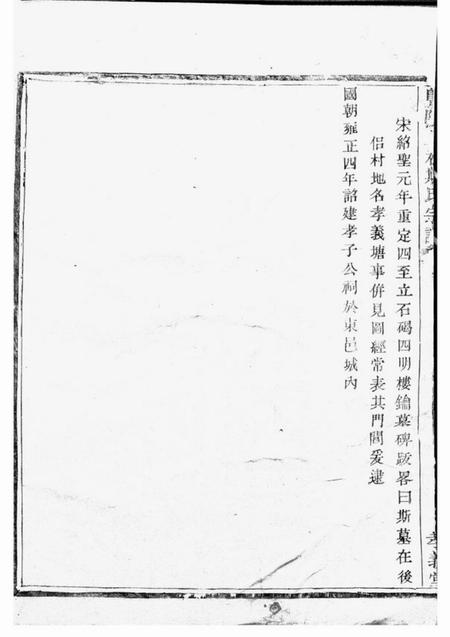 宋紹聖元年重定四至立石碣四明樓鑰墓碑跋畧曰斯墓在後
侶村地名孝義塘事併見圖經常表其門閭爰逮
國朝雍正四年詔建孝子公祠於東邑城內
氏宗譜
孝義堂